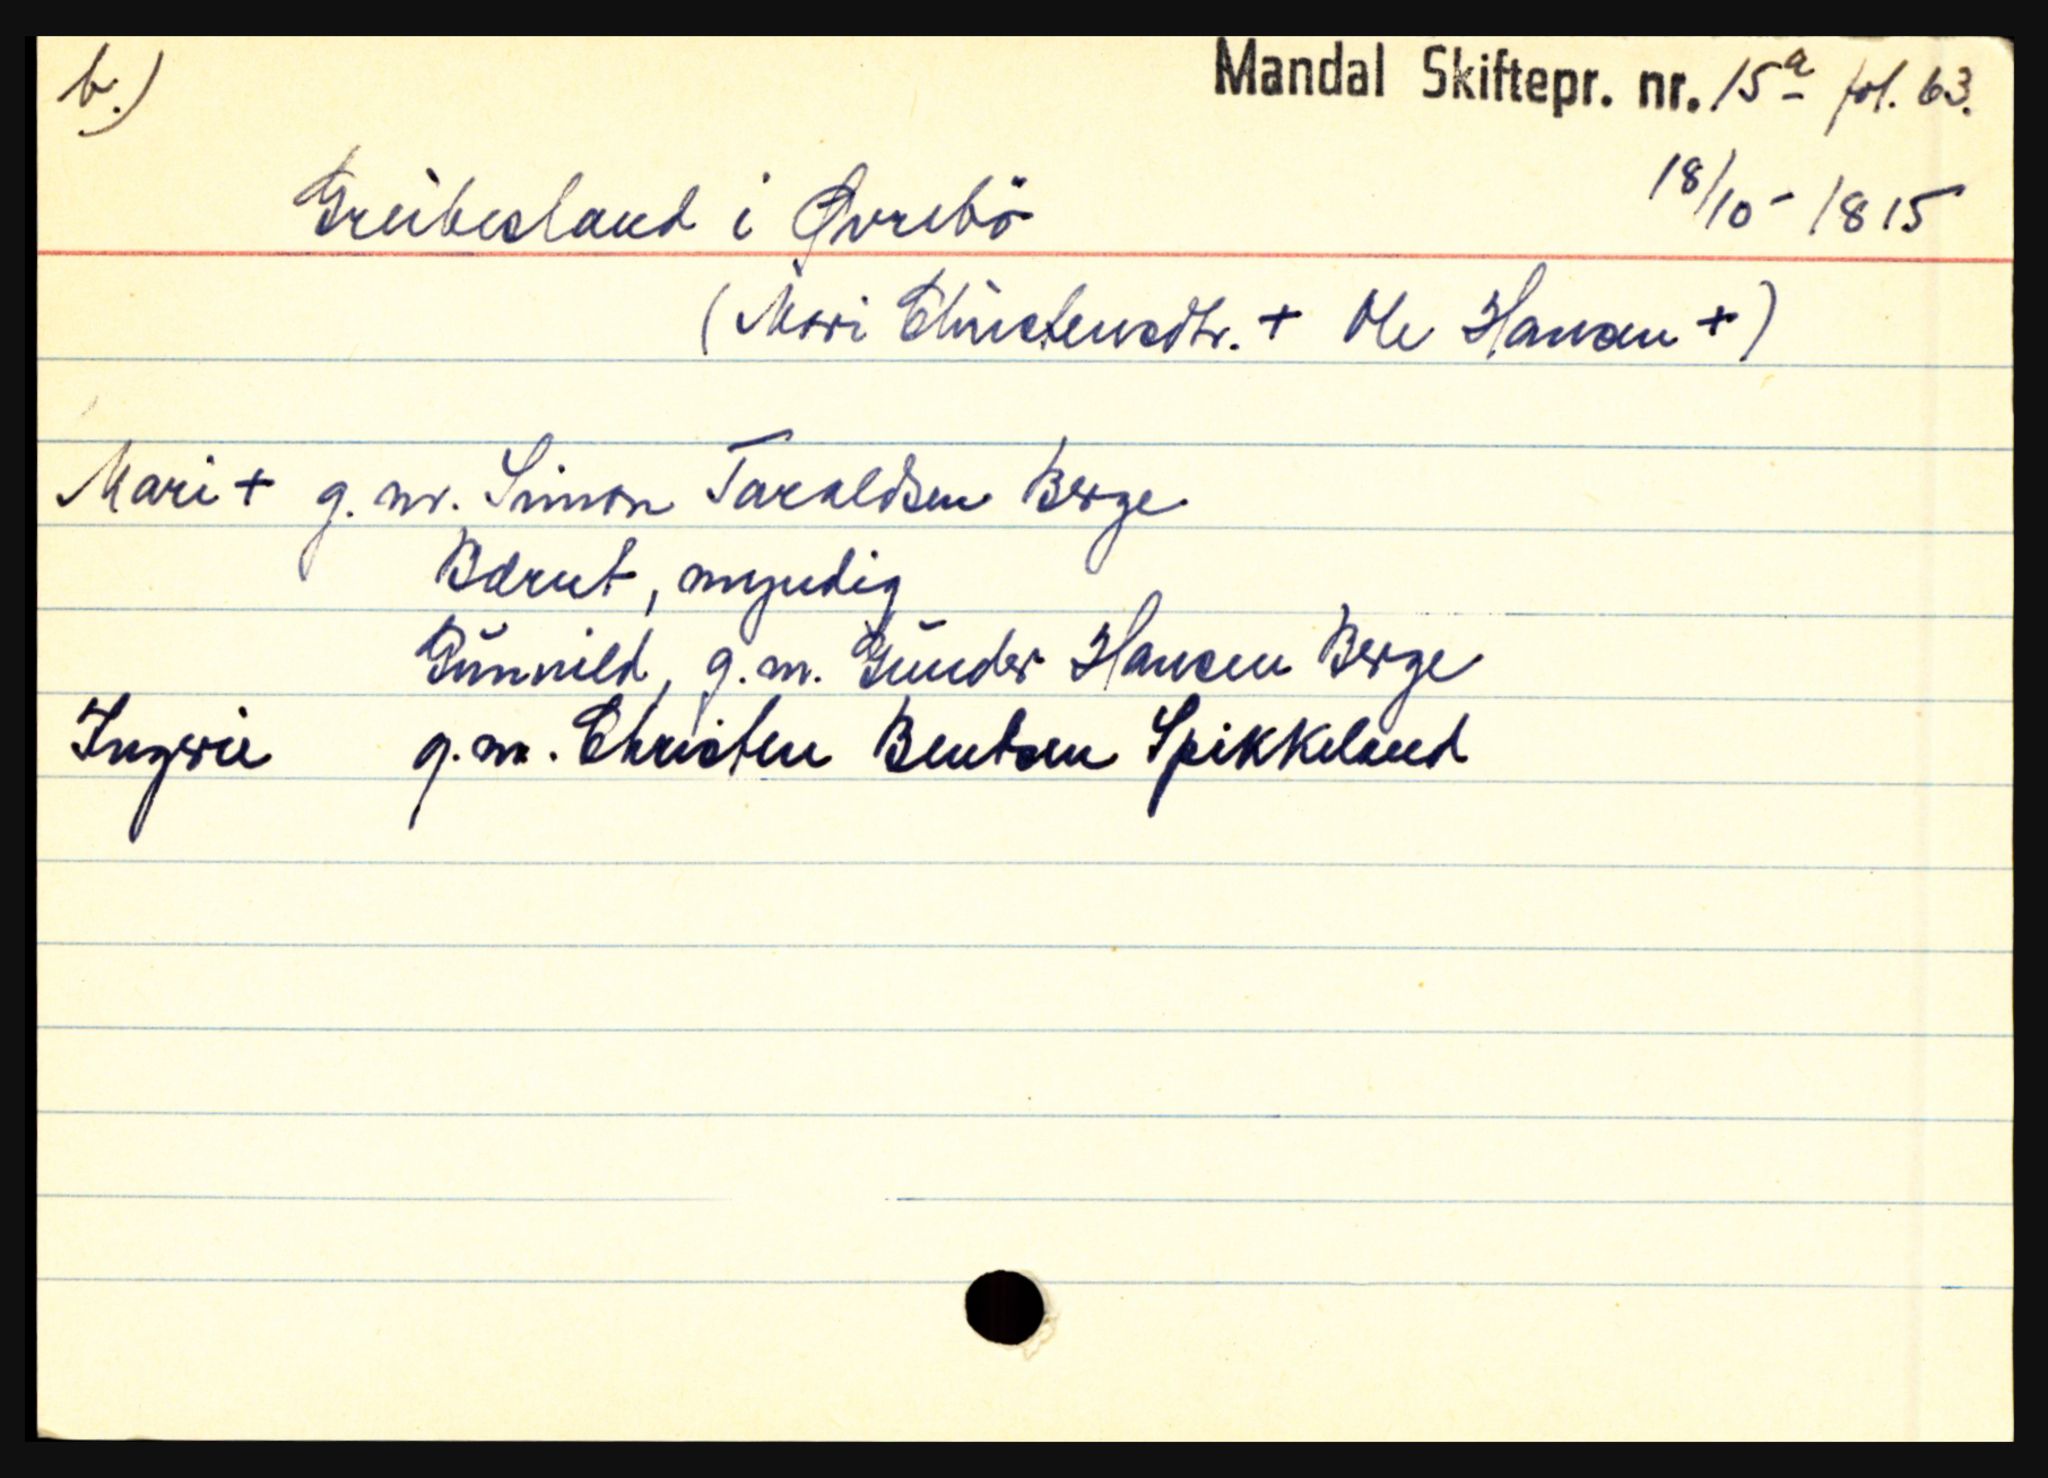 b.)
Mandal Skiftepr. nr. 15a fol. 63.
18/10 - 1815
Greibesland i Øvrebö
(Mari Christensdtr. + Ole Hansen +)
Mari + g.m. Simon Taraldsen Berge
Bærut, myndig
Gŭnnild, g.m. Gŭnder Hansen Berge
Ingerie g.m. Christen Bentsen Spikkeland